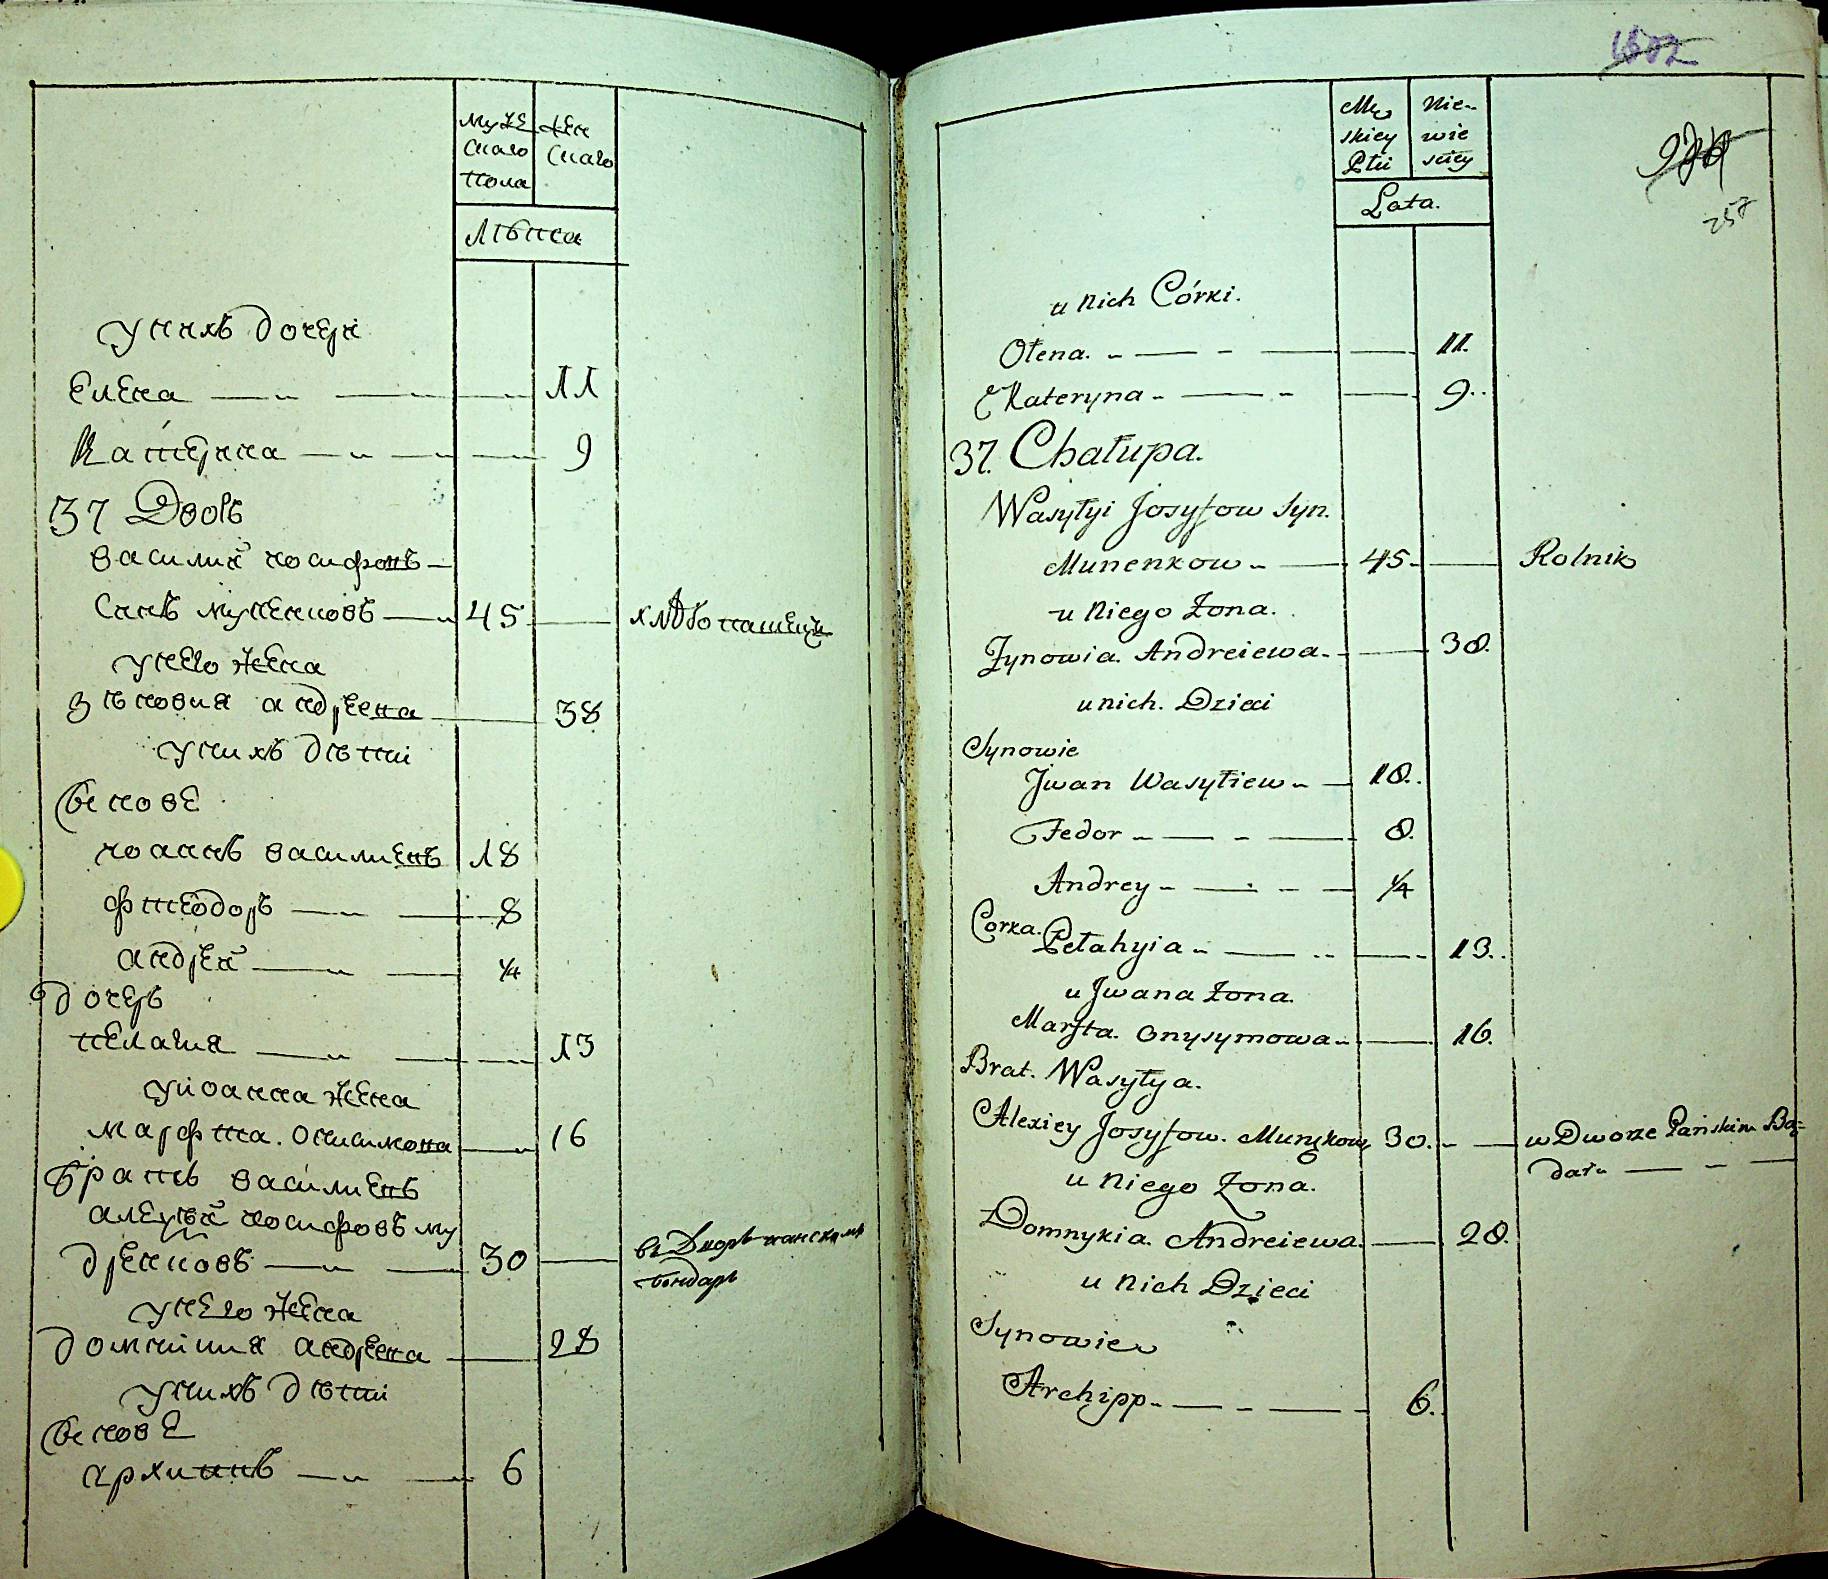 муже
скаго
пола
жен
скаго
лѣта
у нихъ дочери
Елена 11
Катерина 9
37 Дворъ
василий иосифовъ
синъ муненковъ 45 хлѣбопашецъ
у него жена
зѣновия андреева 38
у нихъ дѣти
Синове
иоаннъ василиевъ 18
фтеодоръ 8
андрей 1/4
дочерь
пелагия 13
у иоанна жена
марфта. онисимова 16
братъ василиевъ
алексѣй иосифовъ му
дренковъ 30 въ Дворѣ панскомъ
бондарь
у него жена
домникия андреева 28
у нихъ дѣти
Синове
архиппъ 6
1602
257
Mę
skiey
Płci
Nie-
wie
sciey
Lata.
u nich Córki.
Ołena. 11.
Kateryna 9.
37. Chałupa.
Wasyłyi Josyfow Syn.
Munenkow 45. Rolnik
u Niego Żona.
Zynowia. Andreiewa. 38.
u nich. Dzieci
Synowie
Jwan Wasyłiew 18.
Fedor 8.
Andrey 1/4
Corka. Pełahyia 13.
u Jwana Żona.
Marfta. Onysymowa 16.
Brat. Wasyłya.
Alexiey Josyfow. 30. w Dworze Pańskim Bą-
dar
u Niego Żona.
Domnykia. Andreiewa. 28.
u Nich Dzieci
Synowie
Archipp 6.